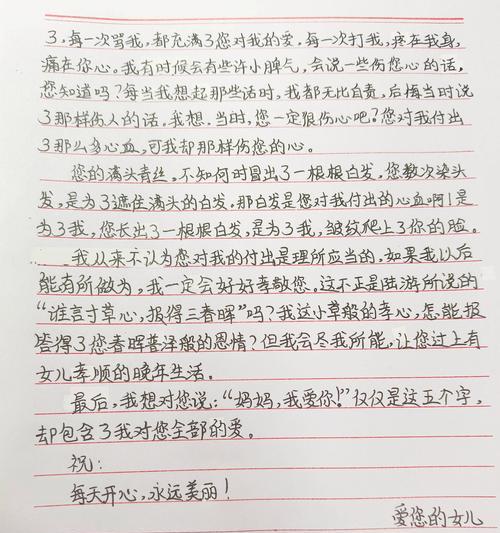 了，每一次骂我，都充满了您对我的爱，每一次打我，疼在我身，
痛在你心。我有时候会有些许小脾气，会说一些伤您心的话，
您知道吗？每当我想起那些话时，我都无比自责，后悔当时说
了那样伤人的话。我想，当时，您一定很伤心吧？您对我付出
了那么多心血，可我却那样伤您的心。
您的满头青丝，不知何时冒出了一根根白发，您数次染头
发，是为了遮住满头的白发。那白发是您对我付出的心血啊！是
为了我，您长出了一根根白发，是为了我，皱纹爬上了你的脸。
我从来不认为您对我的付出是理所应当的，如果我以后
能有所做为，我一定会好好孝敬您。这不正是陆游所说的
“谁言寸草心，报得三春晖”吗？我这小草般的孝心，怎能报
答得了您春晖普泽般的恩情？但我会尽我所能，让您过上有
女儿孝顺的晚年生活。
最后，我想对您说：“妈妈，我爱你！”仅仅是这五个字，
却包含了我对您全部的爱。
祝：
每天开心，永远美丽！
爱您的女儿